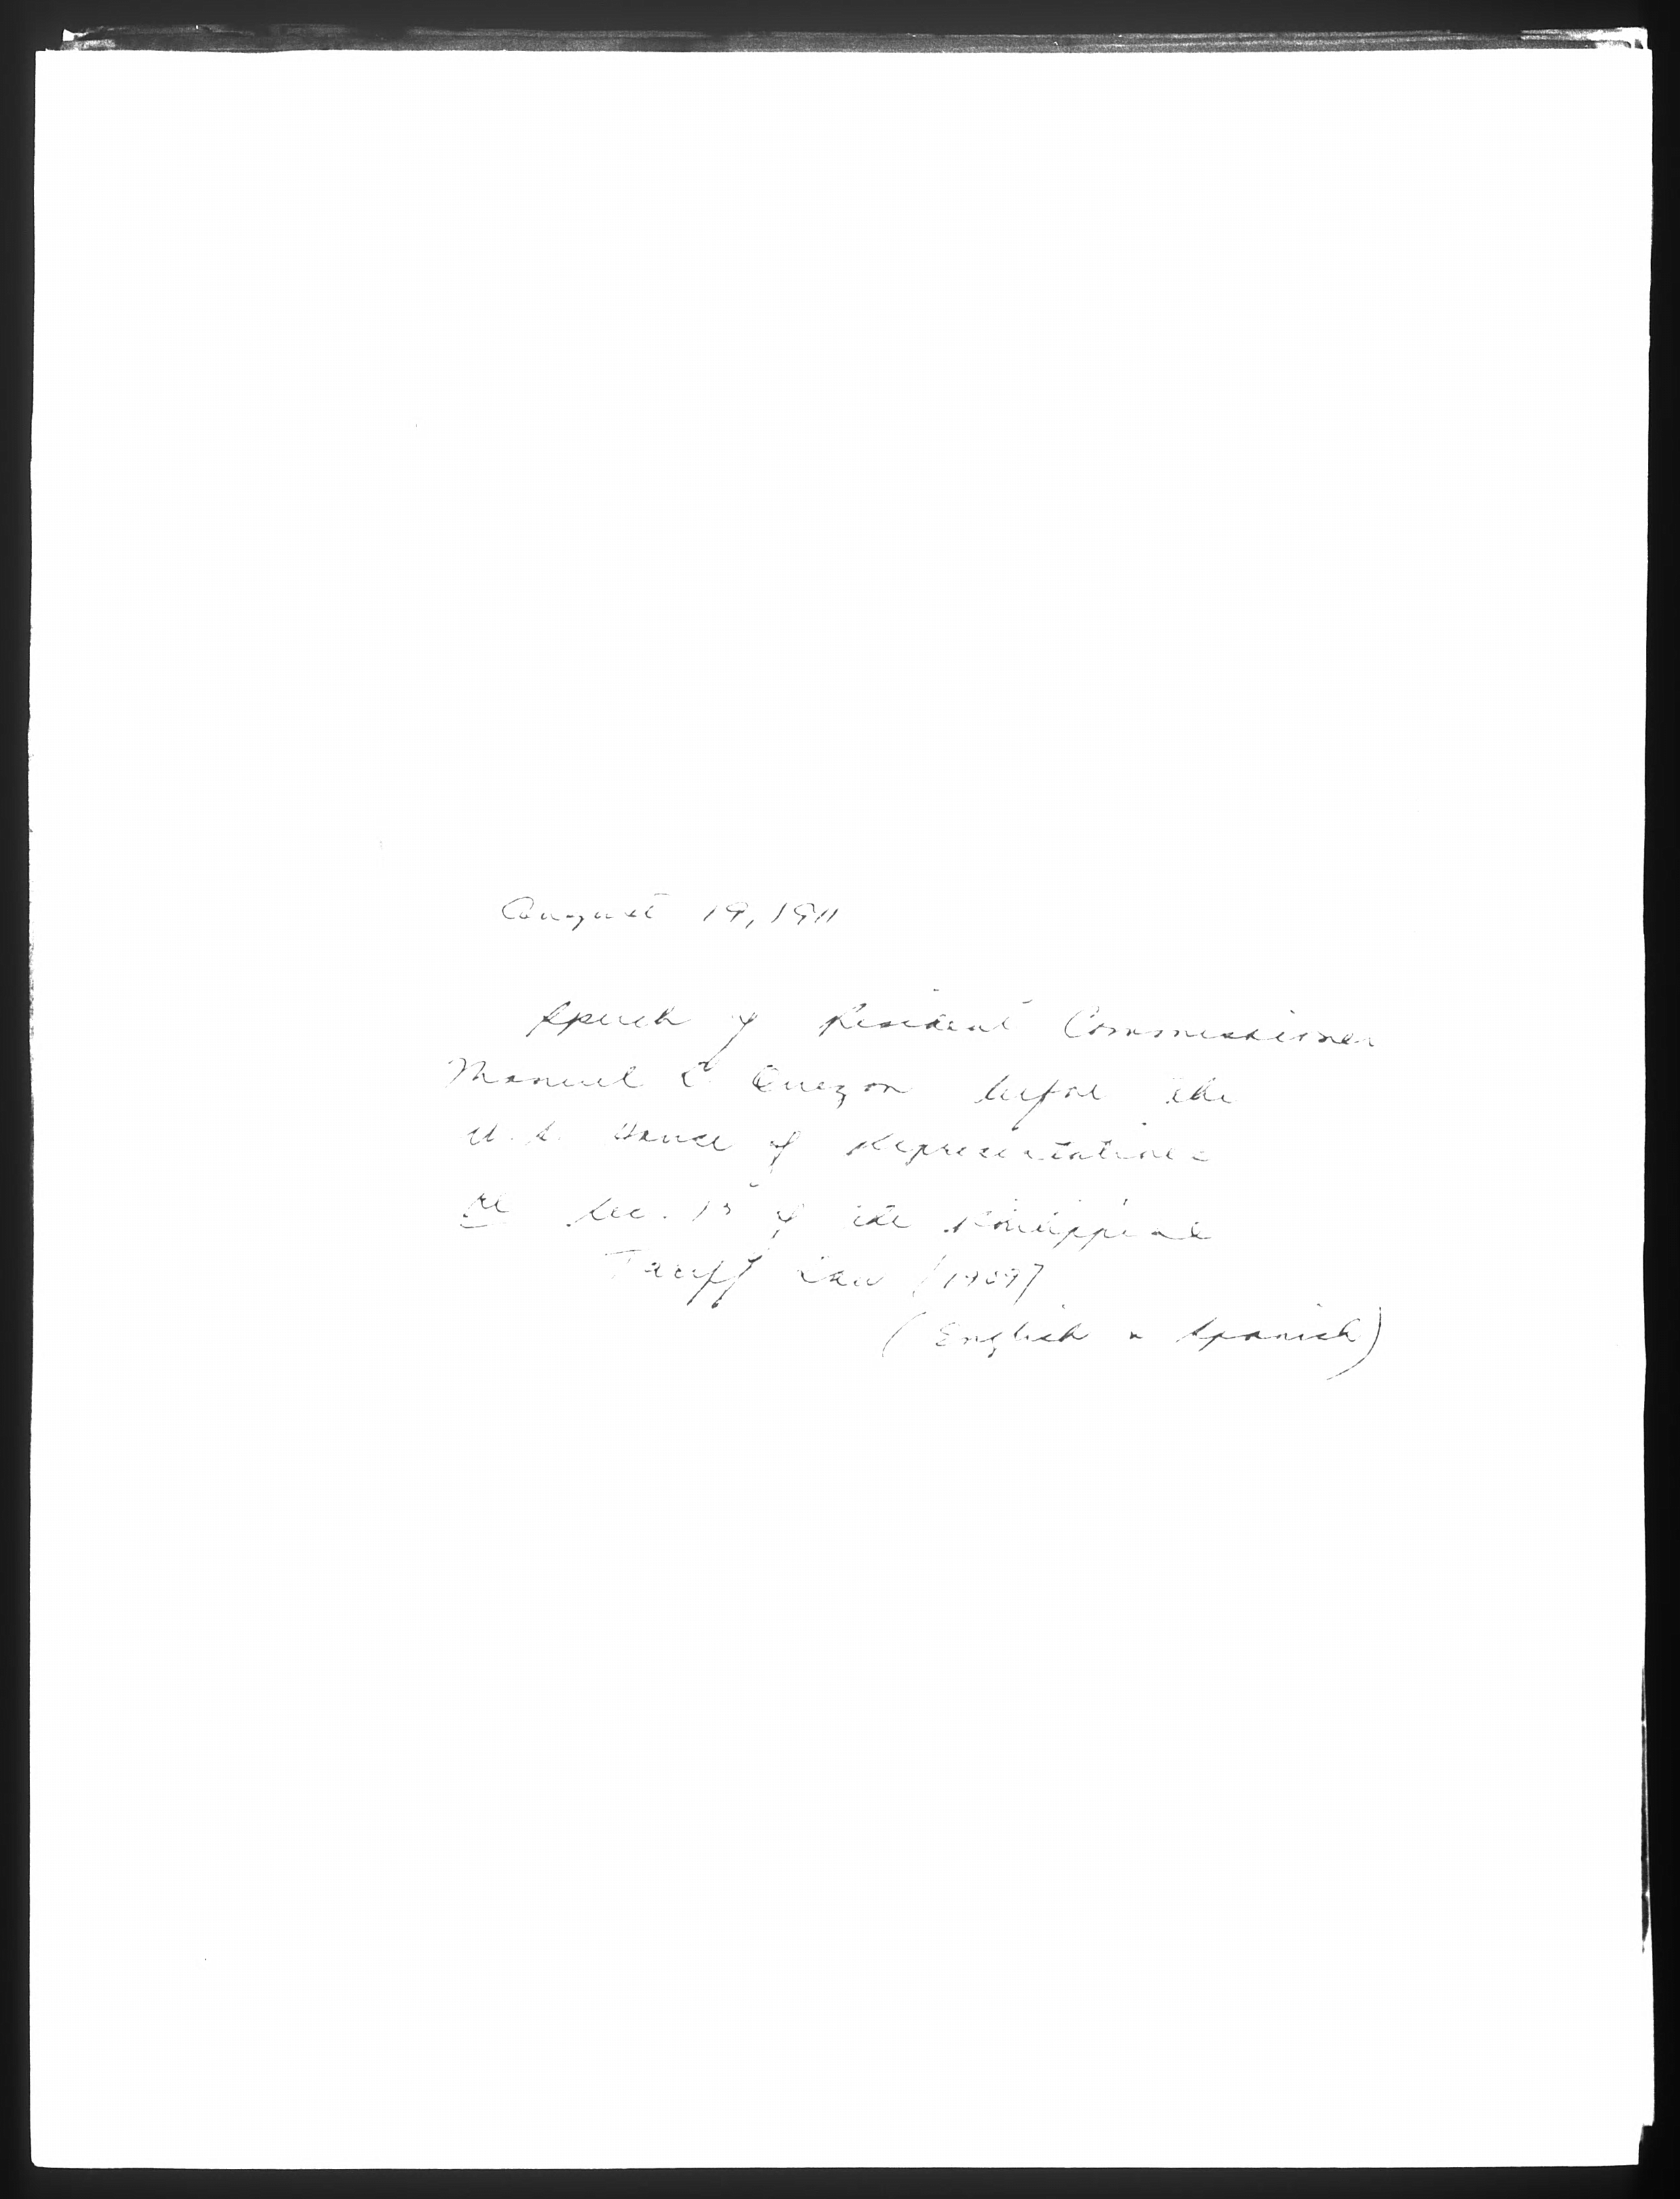 August 19, 1911
Speech of Resident Commissioner
Manuel L. Quezon before the
U.S. House of Representatives
re Sec. 13 of the Philippine
Tariff Law [1909]
(English & Spanish)